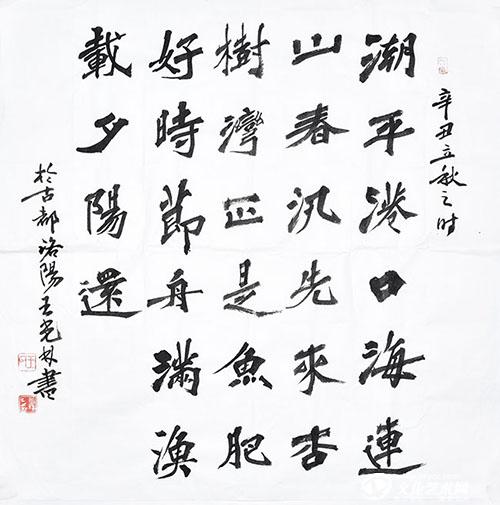 辛丑立秋之时
湖平港口海連
山春汛先來杏
樹灣正是魚肥
好時節舟滿漁
載夕陽還
於古都洛陽王光林書
文化艺术网